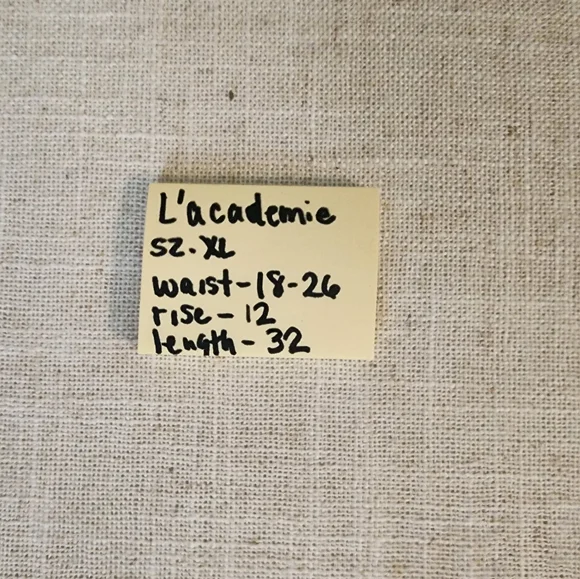 L'academie
sz. XL
waist-18-26
rise-12
length-32